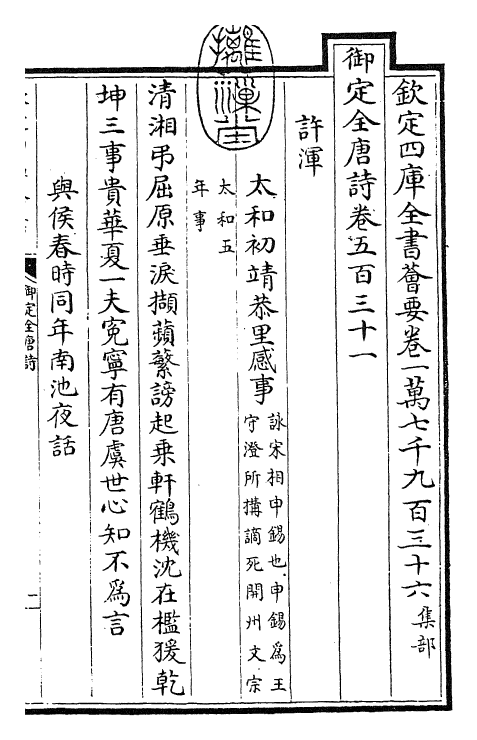 欽定四庫全書薈要卷一萬七千九百三十六 集部
御定全唐詩卷五百三十一
許渾
太和初靖恭里感事 詠宋相申錫也申錫爲王
守澄所搆謫死開州文宗
太和五
年事
清湘弔屈原垂淚擷蘋蘩謗起乗軒鶴機沈在檻猨乾
坤三事貴華夏一夫寃寧有唐虞世心知不爲言
與侯春時同年南池夜話
御定全唐詩